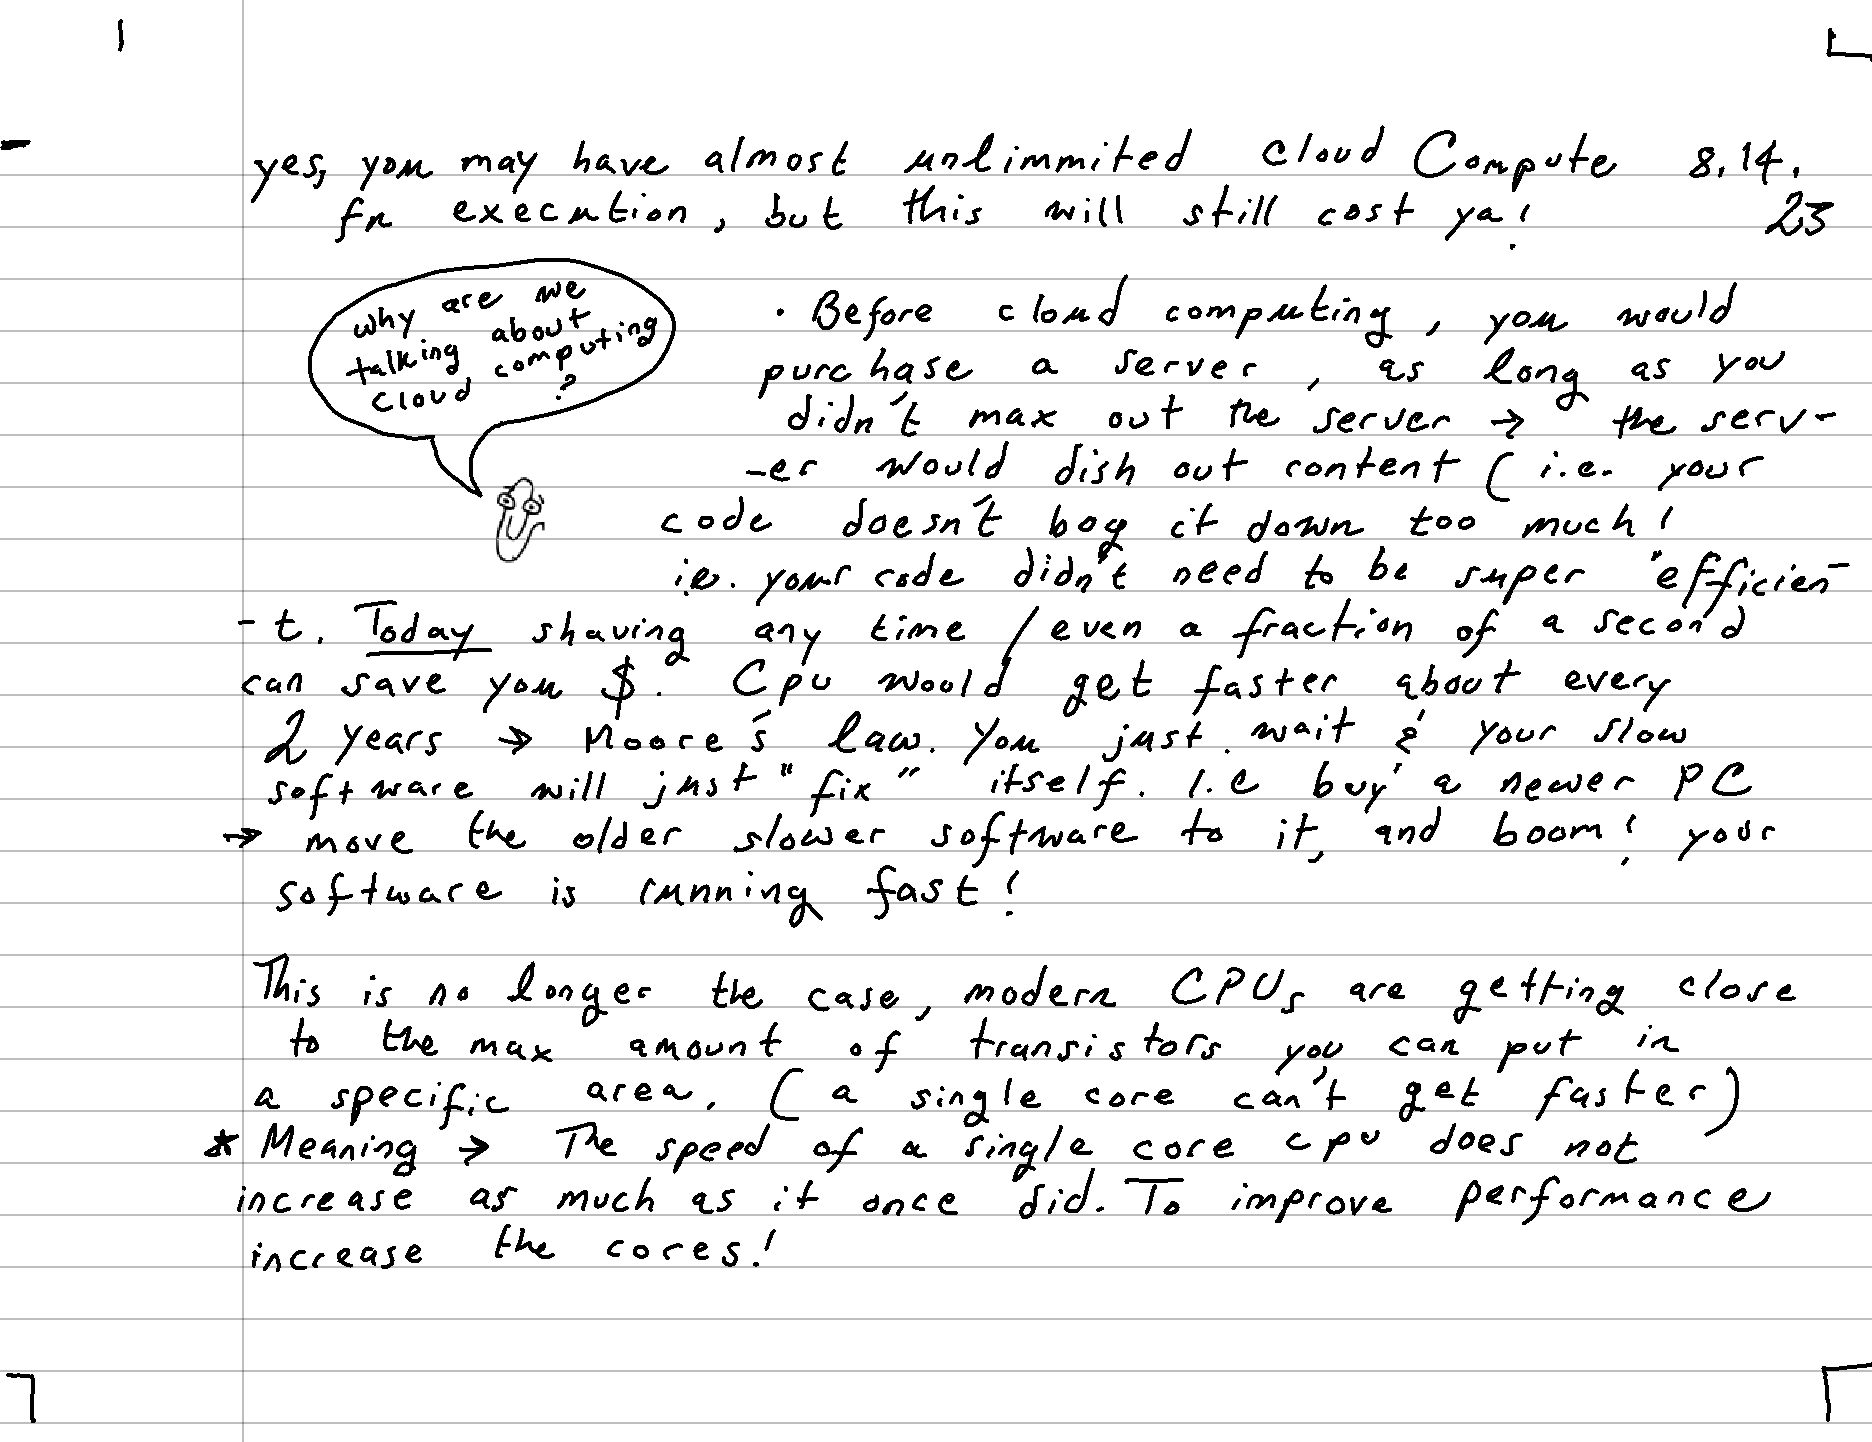 yes, you may have almost unlimmited cloud Compute 8.14.
fn execution, but this will still cost ya! 23
why are we
talking about
cloud computing
?
· Before cloud computing, you would
purchase a server, as long as you
didn't max out the server → the serv-
-er would dish out content ( i.e. your
code doesn't bog it down too much!
i.e. your code didn't need to be super "efficien-
-t. Today shaving any time / even a fraction of a second
can save you $. Cpu would get faster about every
2 years → Moore's law. You just wait & your slow
software will just "fix" itself. I.e buy a newer PC
→ move the older slower software to it, and boom! your
software is running fast!
This is no longer the case, modern CPUs are getting close
to the max amount of transistors you can put in
a specific area. ( a single core can't get faster)
* Meaning → The speed of a single core cpu does not
increase as much as it once did. To improve performance
increase the cores!